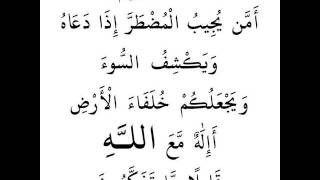 أَمَّن يُجِيبُ الْمُضْطَرَّ إِذَا دَعَاهُ
وَيَكْشِفُ السُّوءَ
وَيَجْعَلُكُمْ خُلَفَاءَ الْأَرْضِ
أَإِلَٰهٌ مَّعَ اللَّهِ